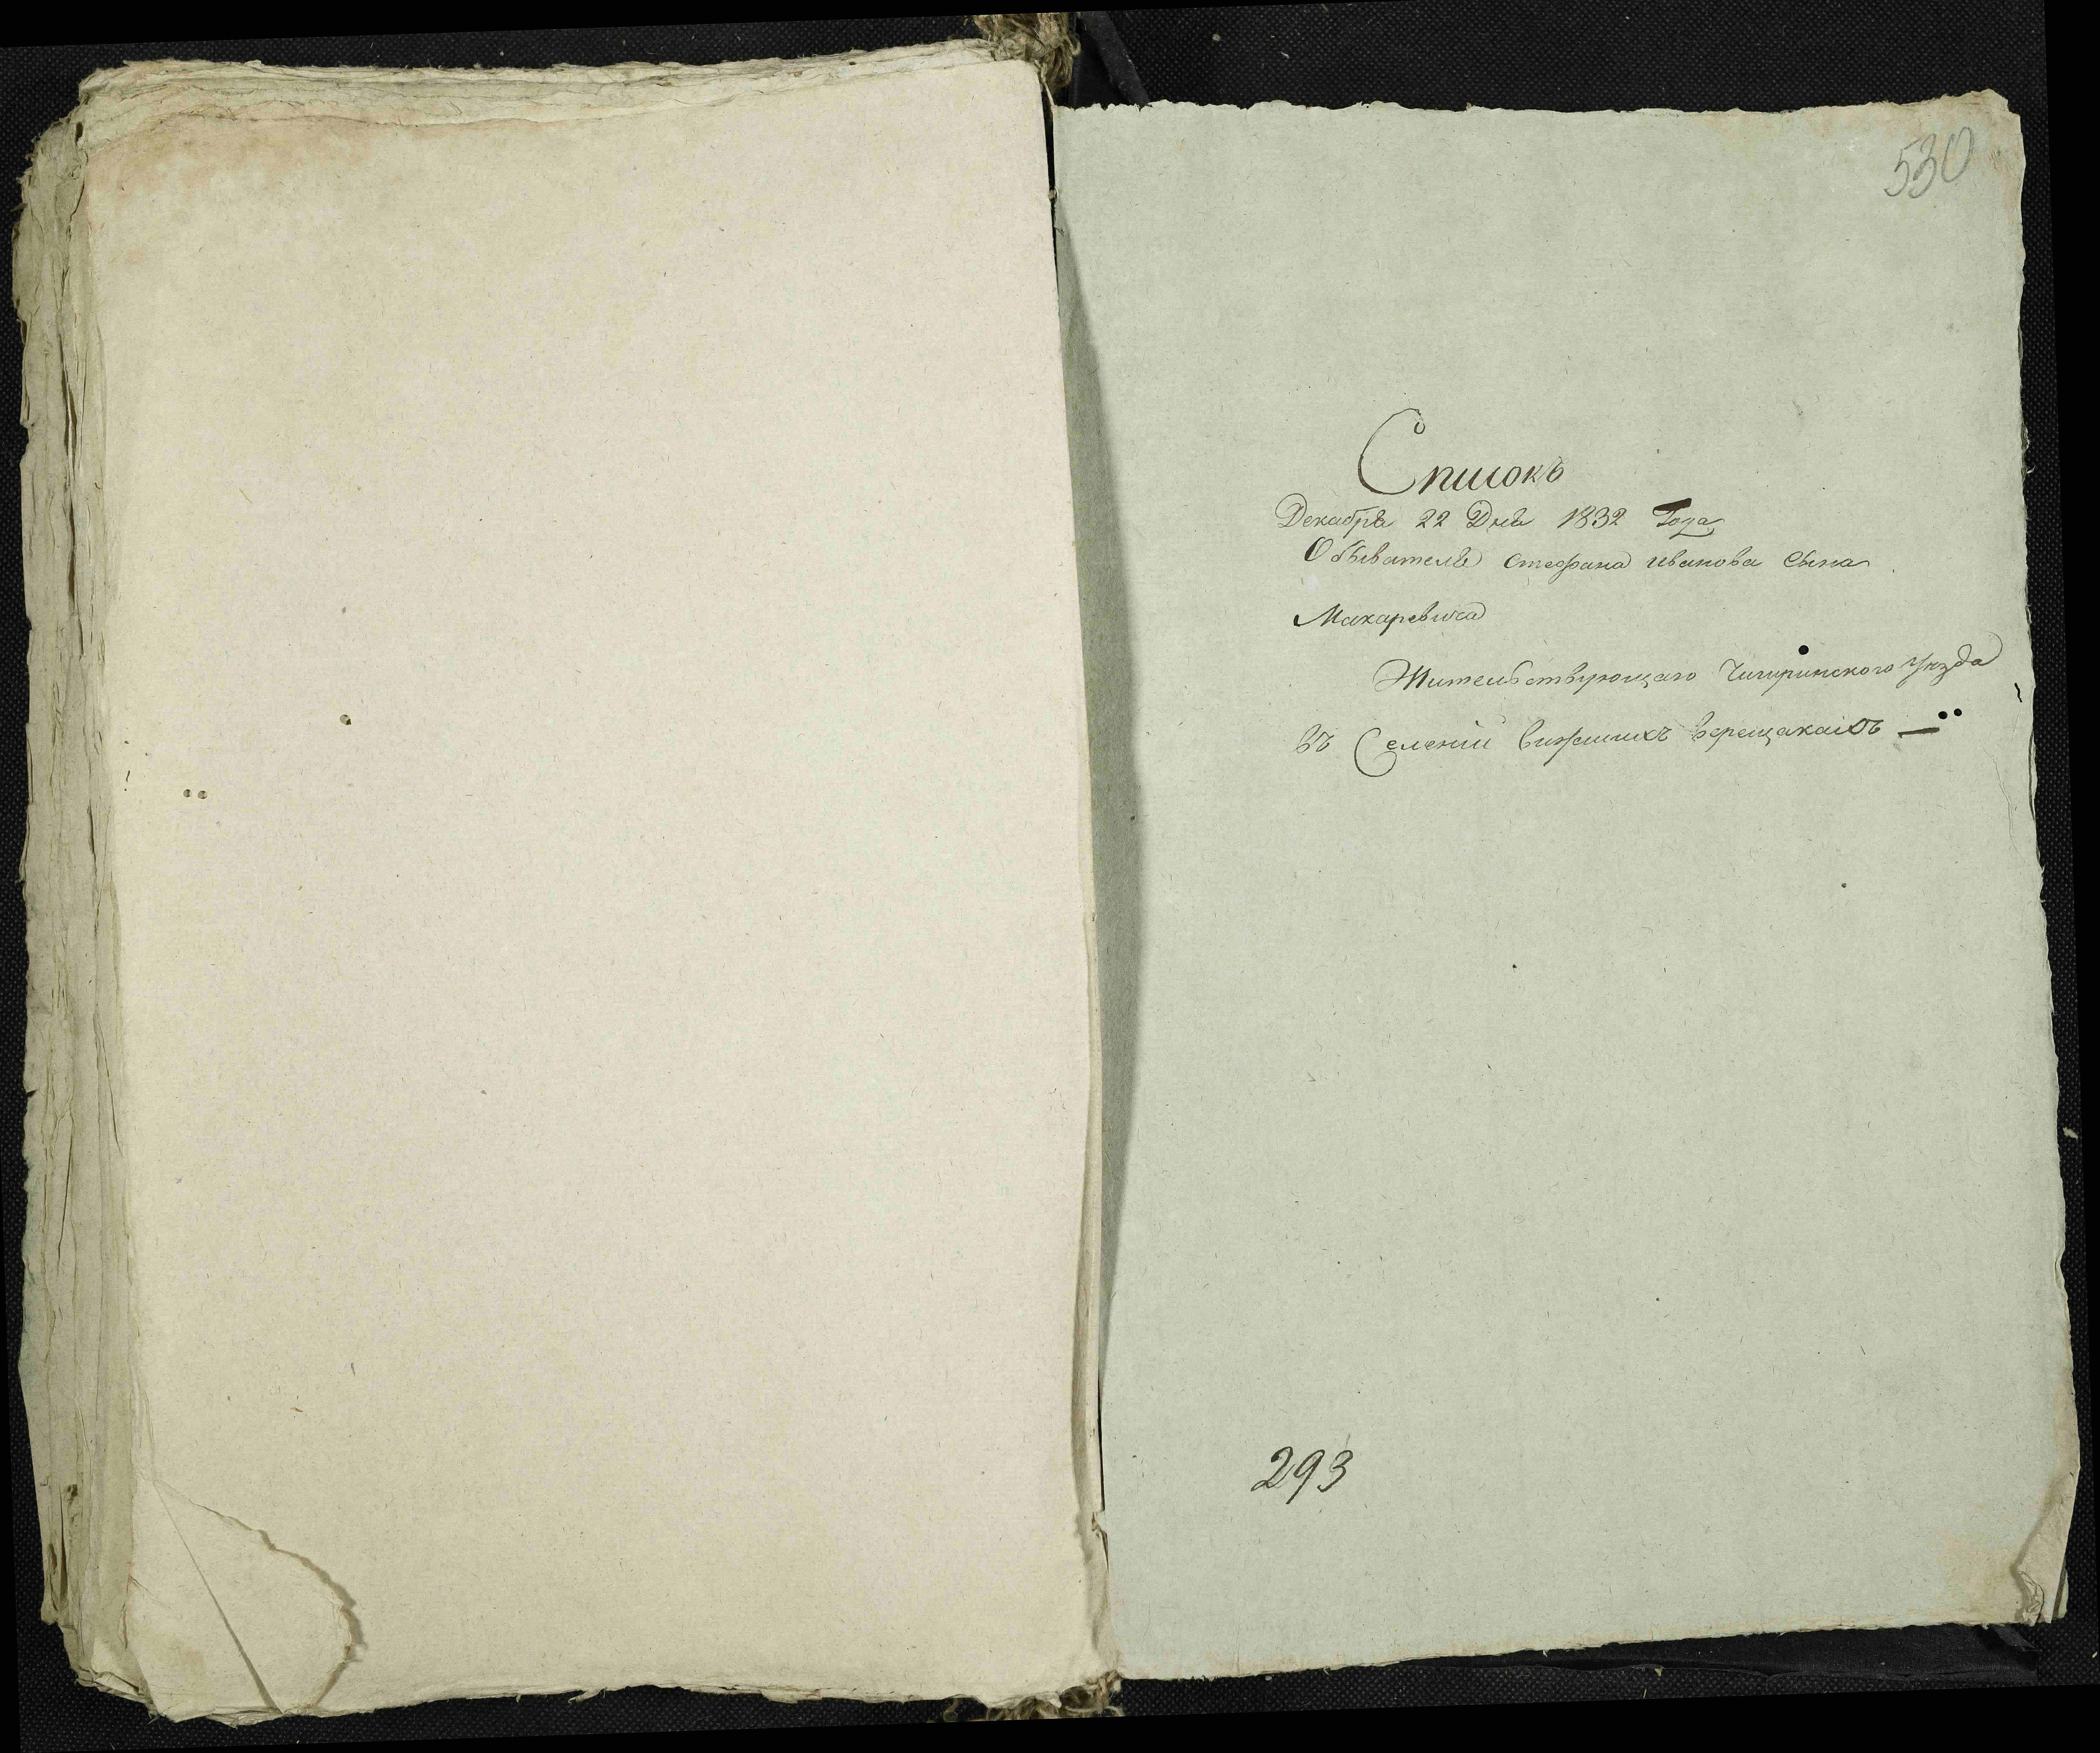 530
Списокъ
Декабря 22 Дня 1832 Года
Обывателя стефана иванова сына
Макаревича
Жительствующаго Чигиринского уезда
въ Селеніи верещакахъ —
293